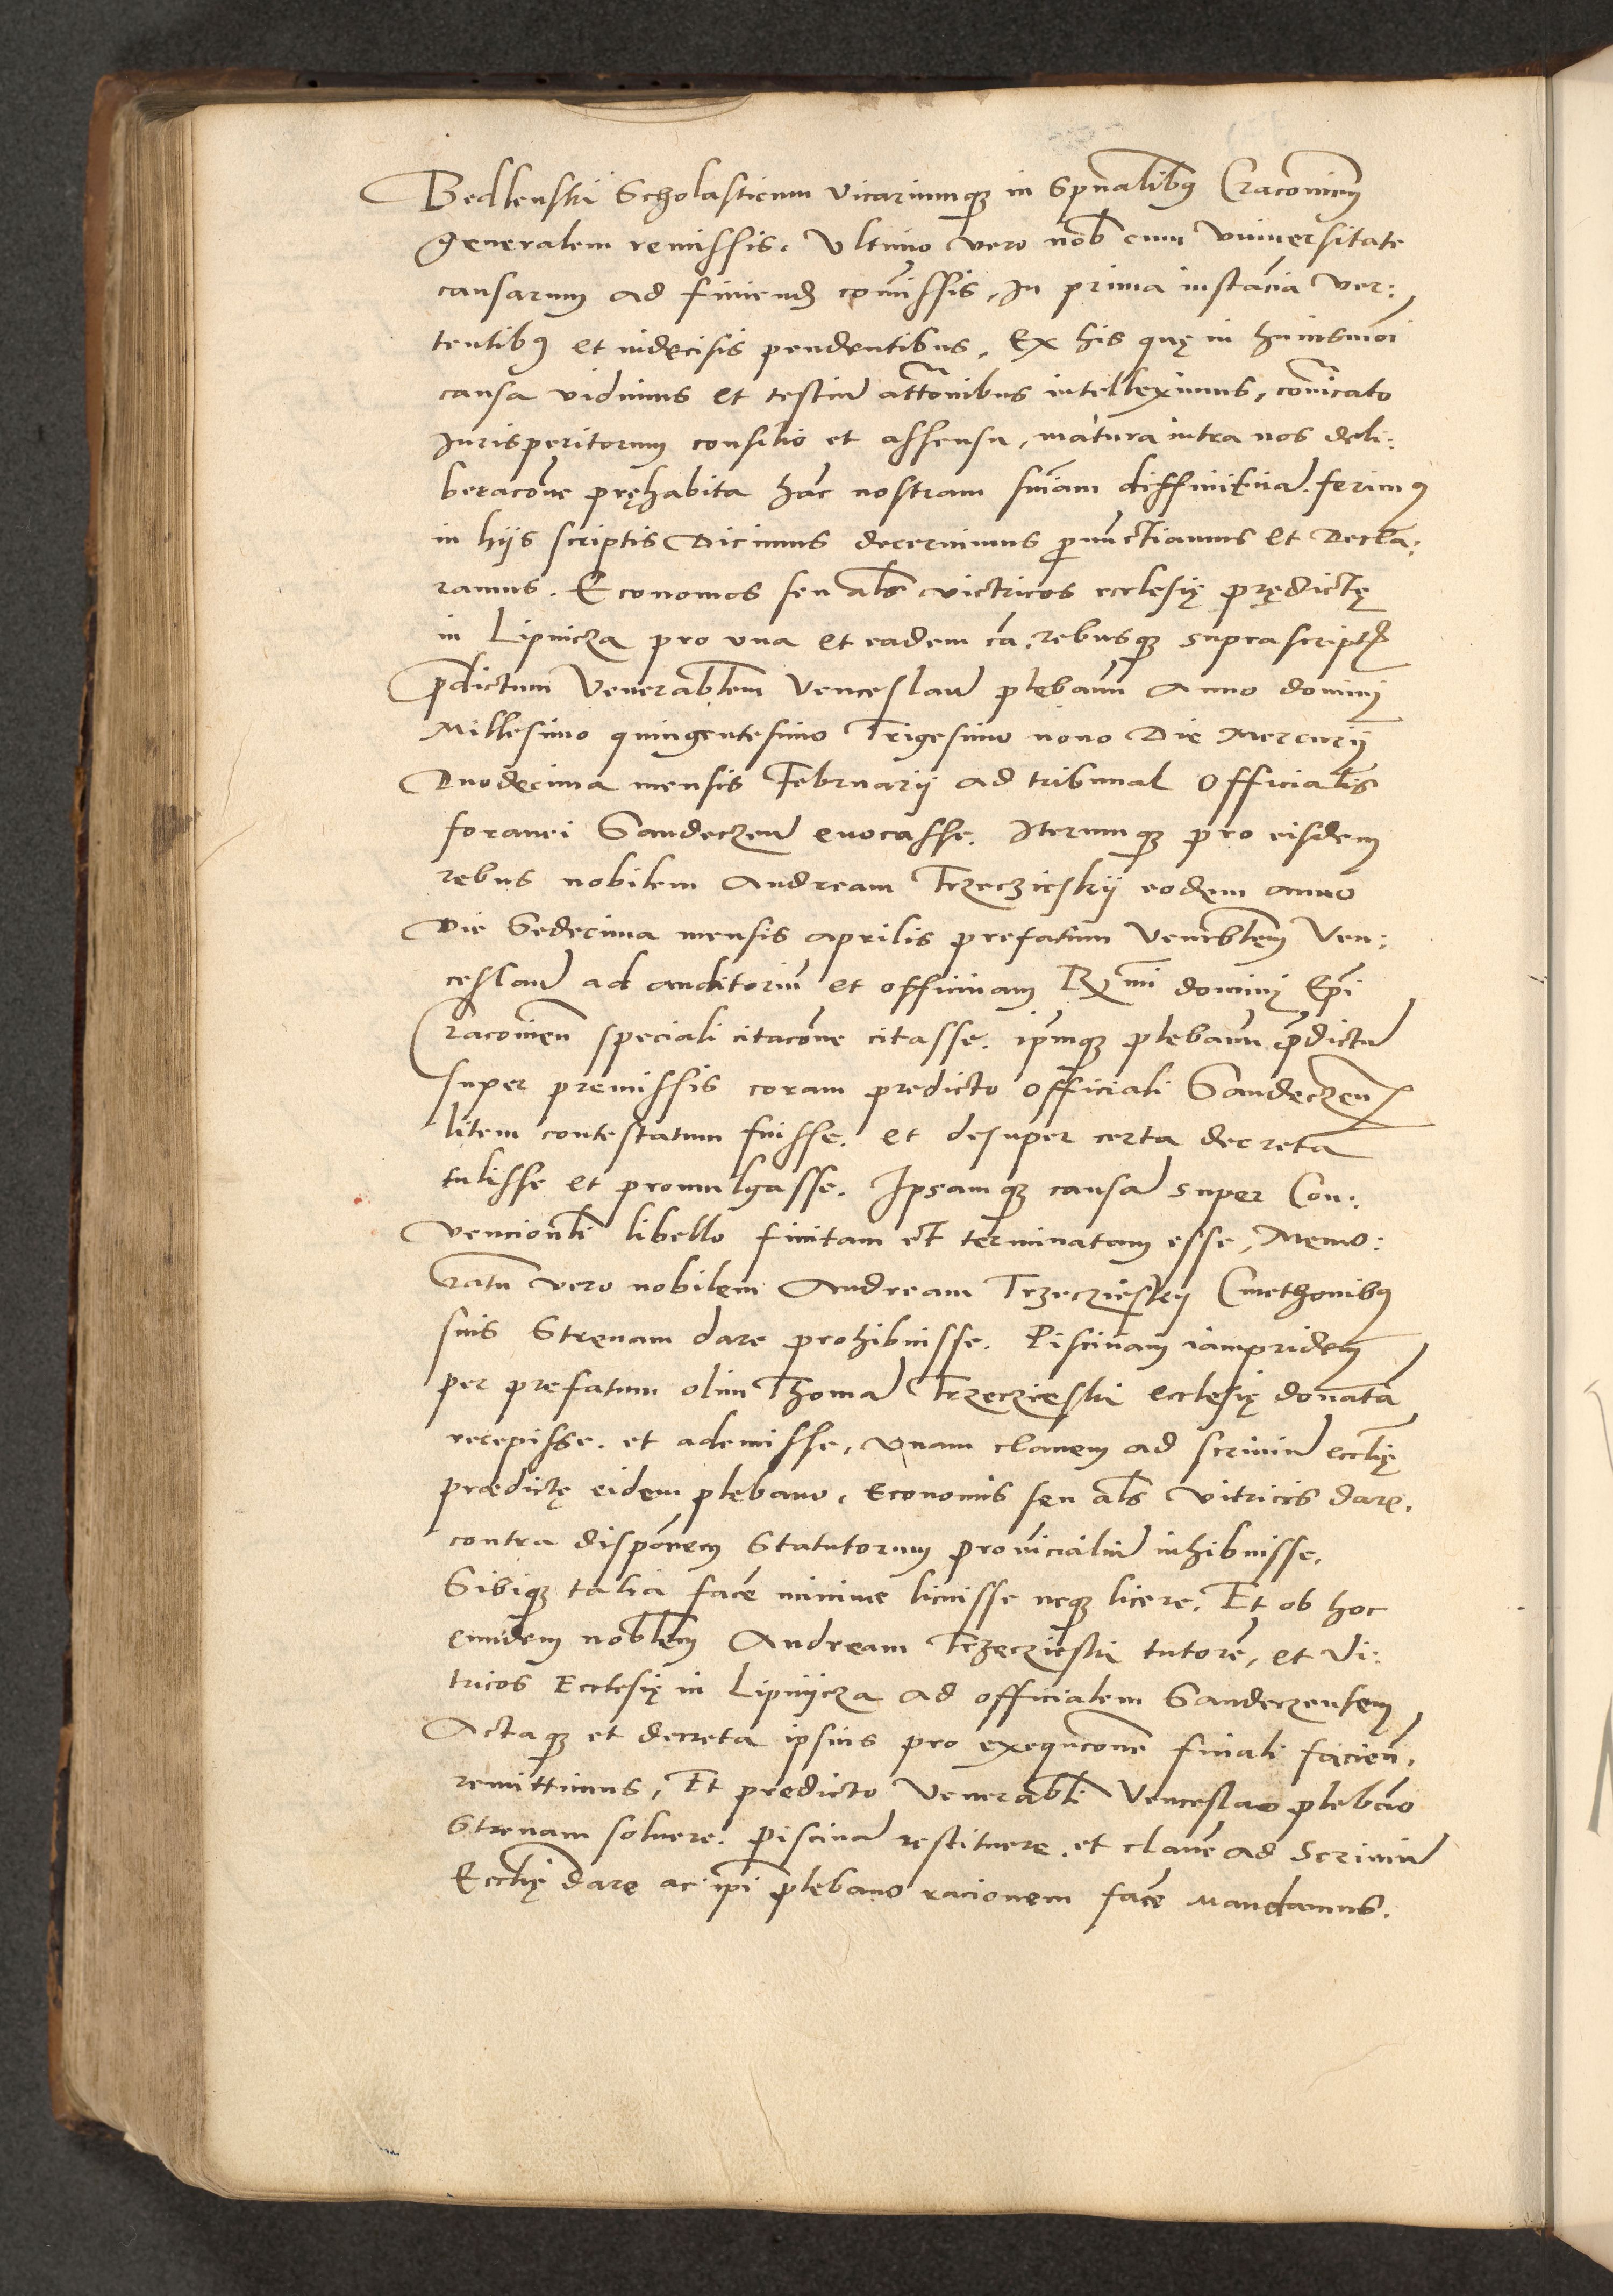 Bedlenskii Scholasticum Vicariumque in Spualibus Cracouien
generalem remissis. Vltimo vero nob cum vniuersitate
causarum ad finiend comissis, In prima instacia ver:
tentibus et indecisis pendentibus, Ex his quę in huiusmoi
causa vidimus et testium attonibus intelleximus, comicato
Jurisperitorum consilio et assensu, matura intra nos deli:
beracone pręhabita hac nostram sniam diffinitiuam. ferimus
in hijs scriptis Dicimus decernimus pnunctiamus et Decla:
ramus. Economos seu als victricos ecclesię prędictę
in Lipnicza pro vna et eadem ca, rebusque suprascriptis
pdictum Venerablem Venceslaum plebanum Anno domini
Millesimo quingentesimo Trigesimo nono Die Mercurij
Duodecima mensis Februarij ad tribunal Officialis
foranei Sandeczen euocasse. Iterumque pro eisdem
rebus nobilem Andream Trzeczieskij eodem anno
Die Sedecima mensis Aprilis prefatum Venerblem Ven:
ceslaum ad auditorium et officinam Rmi domini Epi
Cracouien speciali citacone citasse. ipmque plebanum pdictum
super premissis coram predicto officiali Sandeczen
litem contestatum fuisse. et desuper certa decreta
tulisse et promulgasse. Ipsamque causam super Con:
vencionli libello finitam et terminatam esse, Memo:
ratum vero nobilem Andream Trzeczieskij Cmethonibus
suis Strenam dare prohibuisse. Piscinam iampridem
per prefatum olim Thomam Trzeczieski ecclesię donata
recepisse. et ademisse, vnam clauem ad scrinium ecclię
prædictę eidem plebano, Economis seu als Vitricis dare.
contra disponem Statutorum prouincialium inhibuisse.
Sibique talia face minime licuisse neque licere. Et ob hoc
eundem noblem Andream Trzeczieski tutore, et Vi:
tricos Ecclesię in Lipnijcza ad officialem Sandeczensem
Actaque et decreta ipsius pro exequcone finali facien,
remittimus, Et predicto Venerabli Venceslao plebano
Strenam soluere. Piscinam restituere. et claue ad Scrinium
Ecclię dare ac ipi plebano racionem face mandamus.